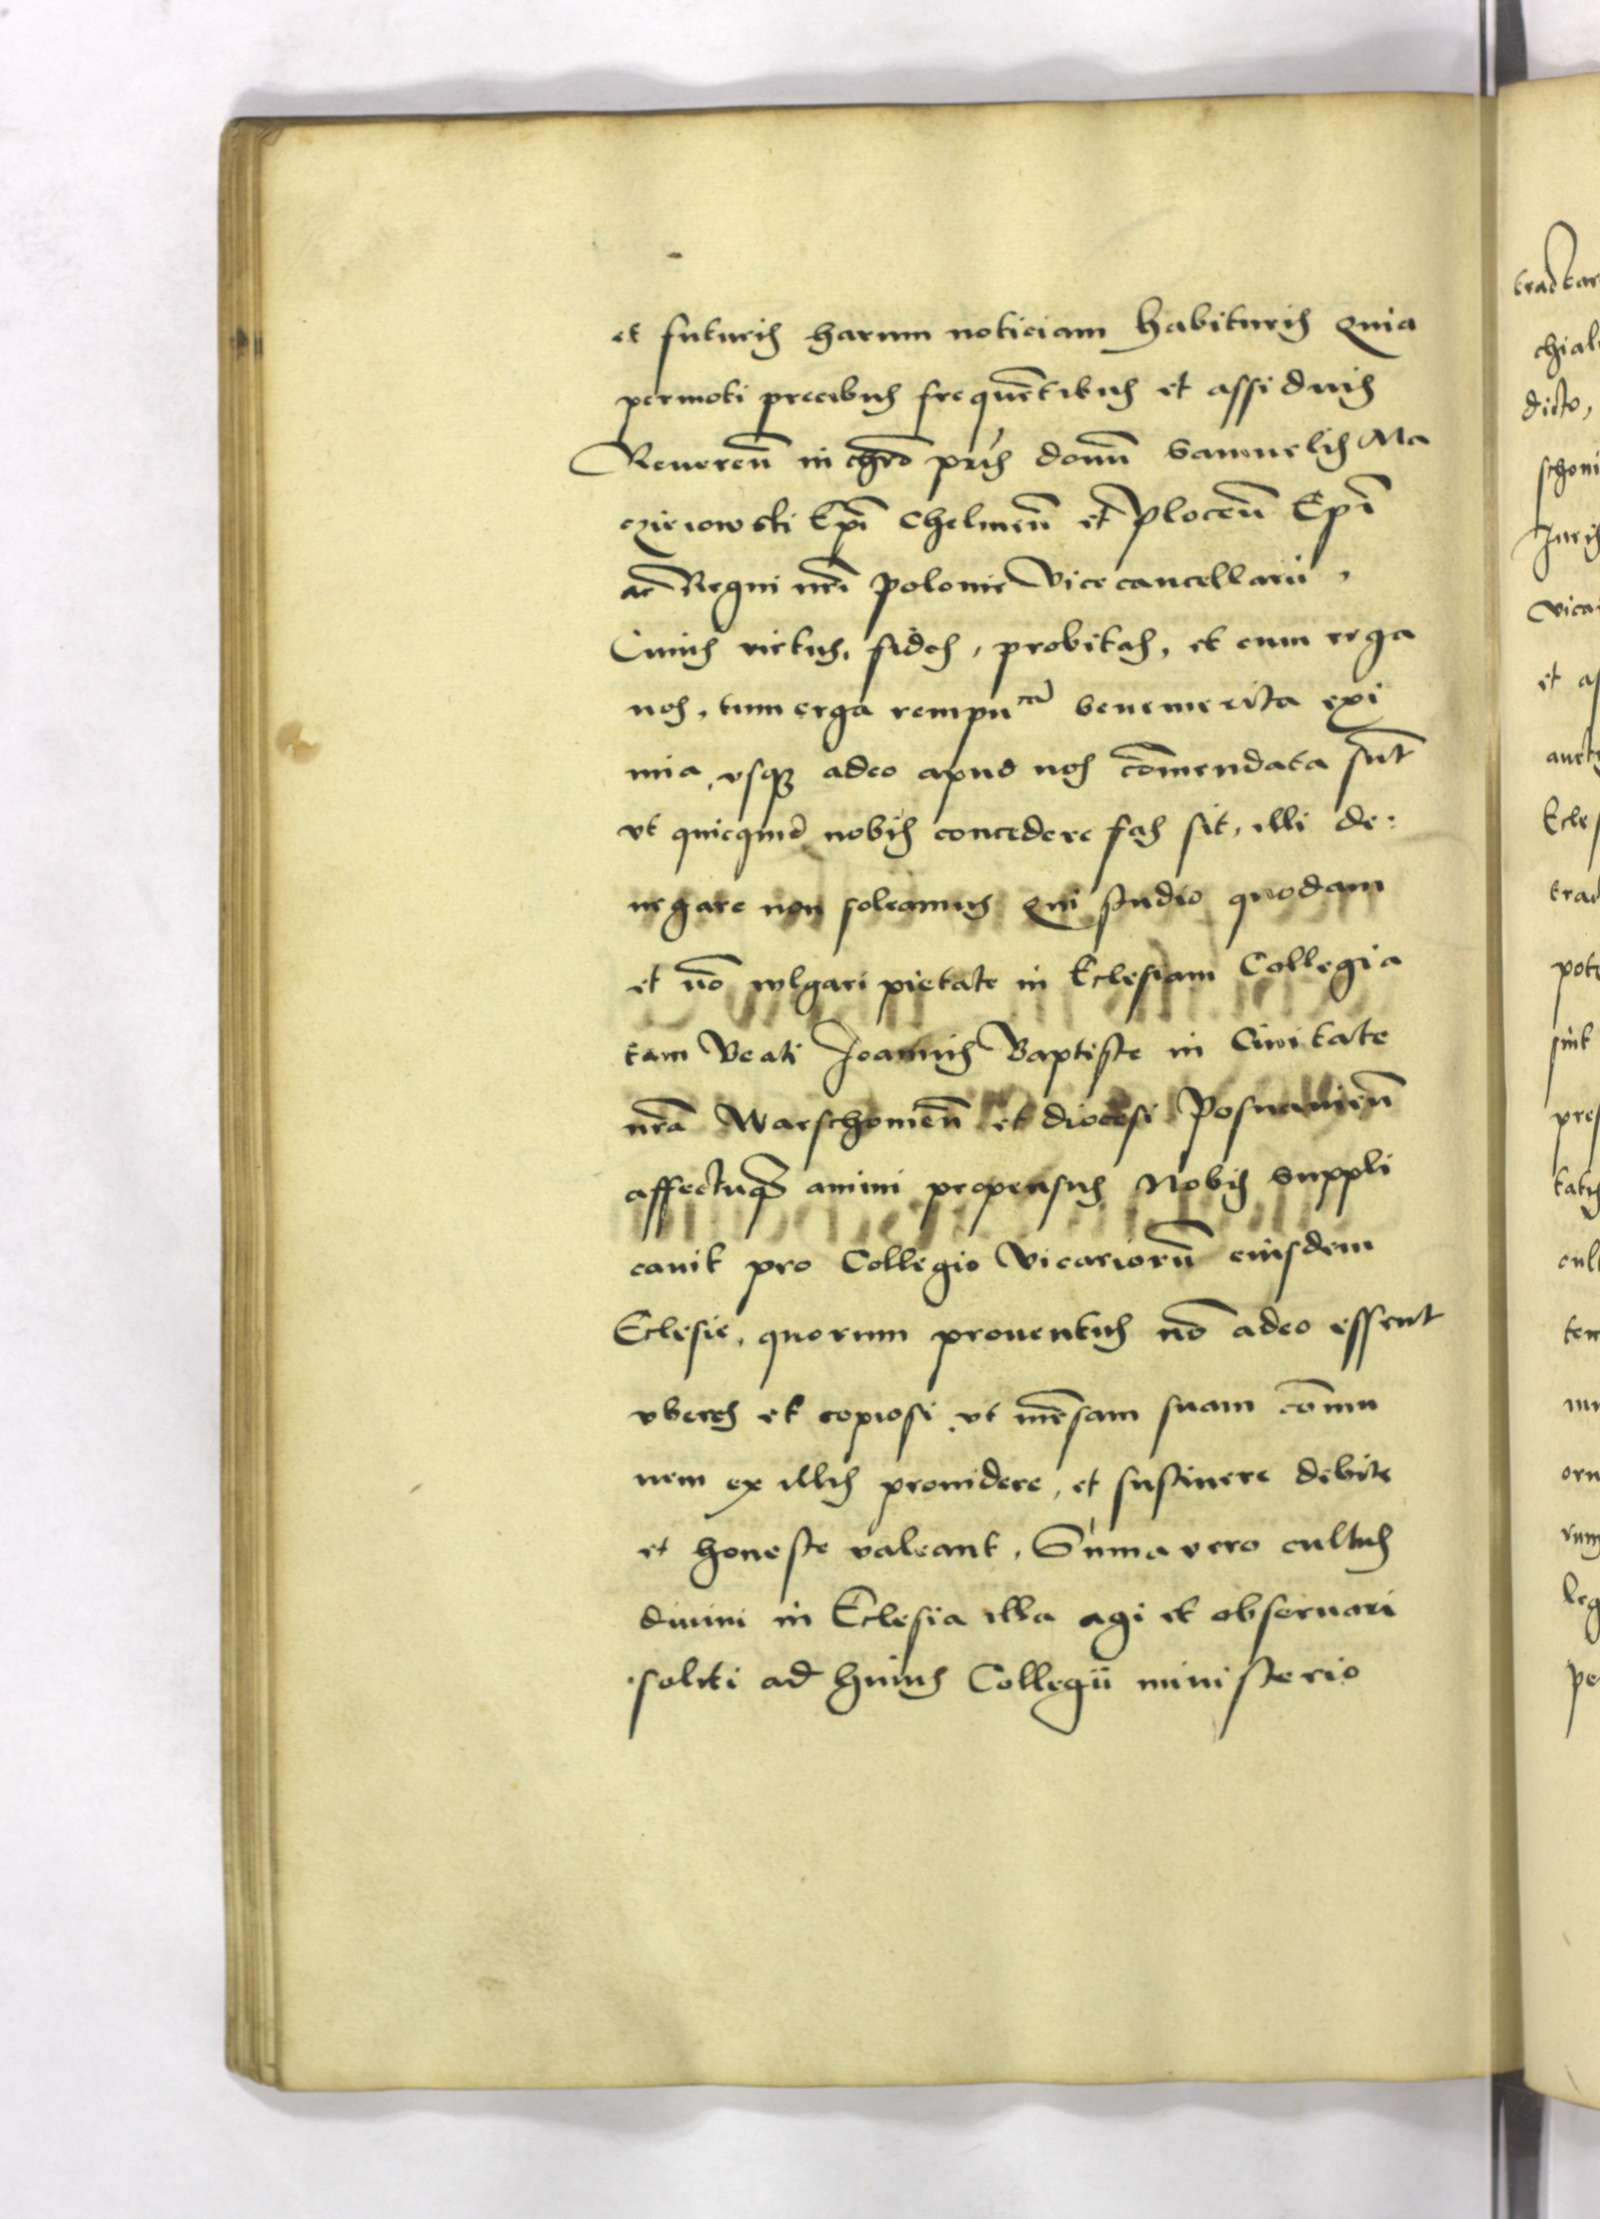 et futuris harum noticiam habituris Quia
permoti precibus frequētibus et assiduis
Reueren̄ in chrō pr̄is domn̄ Samuelis Ma
czieiowski Ep̄i Chelmen̄ et Plocen̄ Ep̄i
ac Regni nr̄i Polonie Vicecancellarii,
Cuius virtus, fides, probitas, et cum erga
nos, tum erga rempu^cā benemerita exi
mia, vsqȝ adeo apud nos cōmendata sūt
vt quicquid nobis concedere fas sit, illi de:
negare non soleamus Qui studio quodam
et nō wlgari pietate in Eclesiam Collegia
tam Beati Joannis Baptiste in Ciuitate
nr̄a Warschouien̄ et diocesi Posnanien̄
affectuqȝ animi propensus Nobis Suppli
cauit pro Collegio Vicariorū eiusdem
Eclesie, quorum prouentus nō adeo essent
vberes et copiosi, vt mēsam suam cōmu
nem ex illis prouidere, et sustinere debite
et honeste valeant, Sūma vero cultus
diuini in Eclesia illa agi et obseruari
soliti ad huius Collegii ministerio
tractar
chial
dicto,
schoui
Juris
vicar
et as
auct
Ecles
trad
pote
sint
pres
tatis
cul
ten
orn
rum
leg
pe